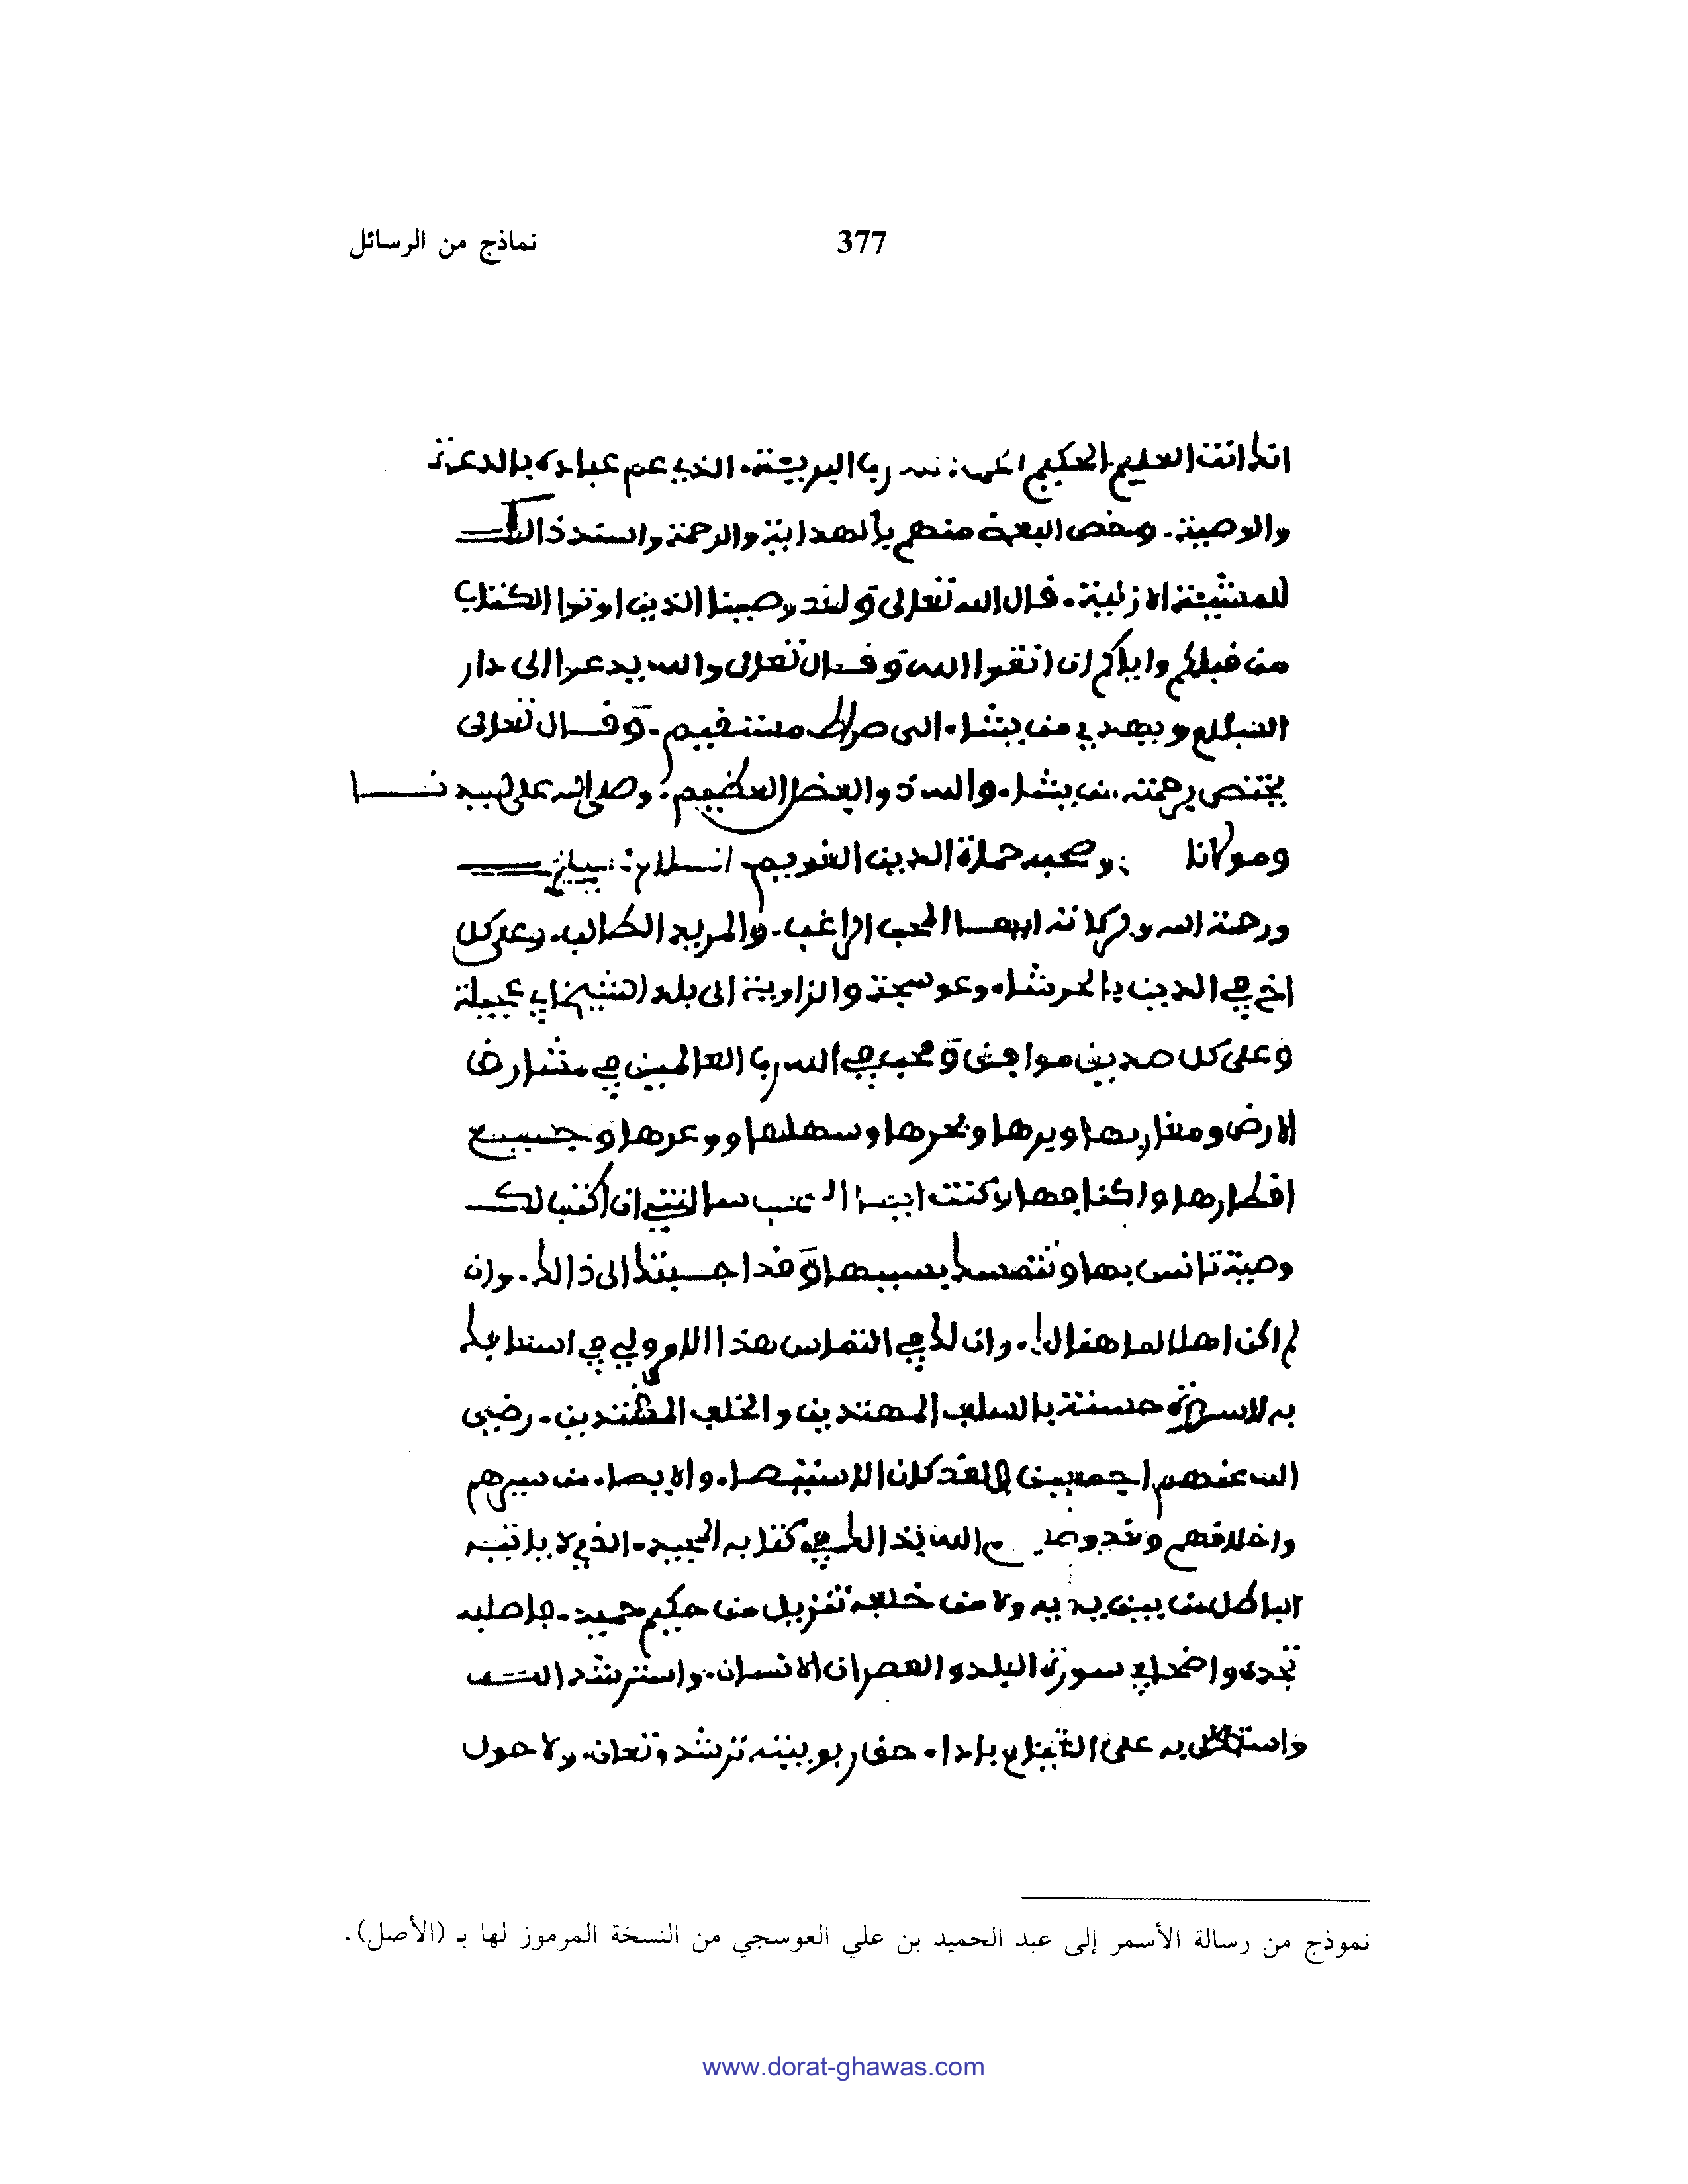 نماذج من الرسائل
377
انك انت العليم الحكيم الحمد لله رب البرية. الذي عم عباده بالدعوة
والوصية. وخص البعض منهم بالهداية والرحمة واسند ذالك
للمشيئة الازلية. قال الله تعلى ولقد وصينا الذين اوتوا الكتاب
من قبلكم واياكم ان اتقوا الله وقال تعلى والله يدعوا الى دار
السلام ويهدي من يشاء الى صراط مستقيم. وقال تعلى
يختص برحمته من يشاء. والله ذو الفضل العظيم. وصلى الله على سيدنا
ومولانا وصحبه حملة الدين القويم السلام
ورحمة الله وبركاته ايها المحب الراغب. والمريد الطالب. وعلى كل
اخ في الدين بالحرشاء وعوسجة والزاوية الى بلد
وعلى كل صديق موافق ومحب في الله رب العالمين في مشارق
الارض ومغاربها وبرها وبحرها وسهلها ووعرها وجميع
اقطارها واكنافها لا كنت ان اكتب لك
وصية تانس بها وتتمسك بسببها وقد اجبتك الى ذالك. وان
لم اكن اهلا لما هنالك. وان لك في التماس هذا الامر ولي في اسعافك
به لاسوة حسنة بالسلف المهتدين والخلف المقتدين. رضي
الله عنهم اجمعين لقد كان الاستيصاء والايصاء من سيرهم
واخلاقهم وقد الله بذالك في كتابه المجيد. الذي لا ياتيه
الباطل من بين يديه ولا من خلفه تنزيل من حكيم حميد. فاطلبه
تجده واضحا في سورة البلد والعصر ان الانسان. واسترشد الله
به على القيام باداء حق ربوبيته ترشد وتعان. ولا حول
نموذج من رسالة الأسمر إلى عبد الحميد بن علي العوسجي من النسخة المرموز لها بـ (الأصل).
www.dorat-ghawas.com